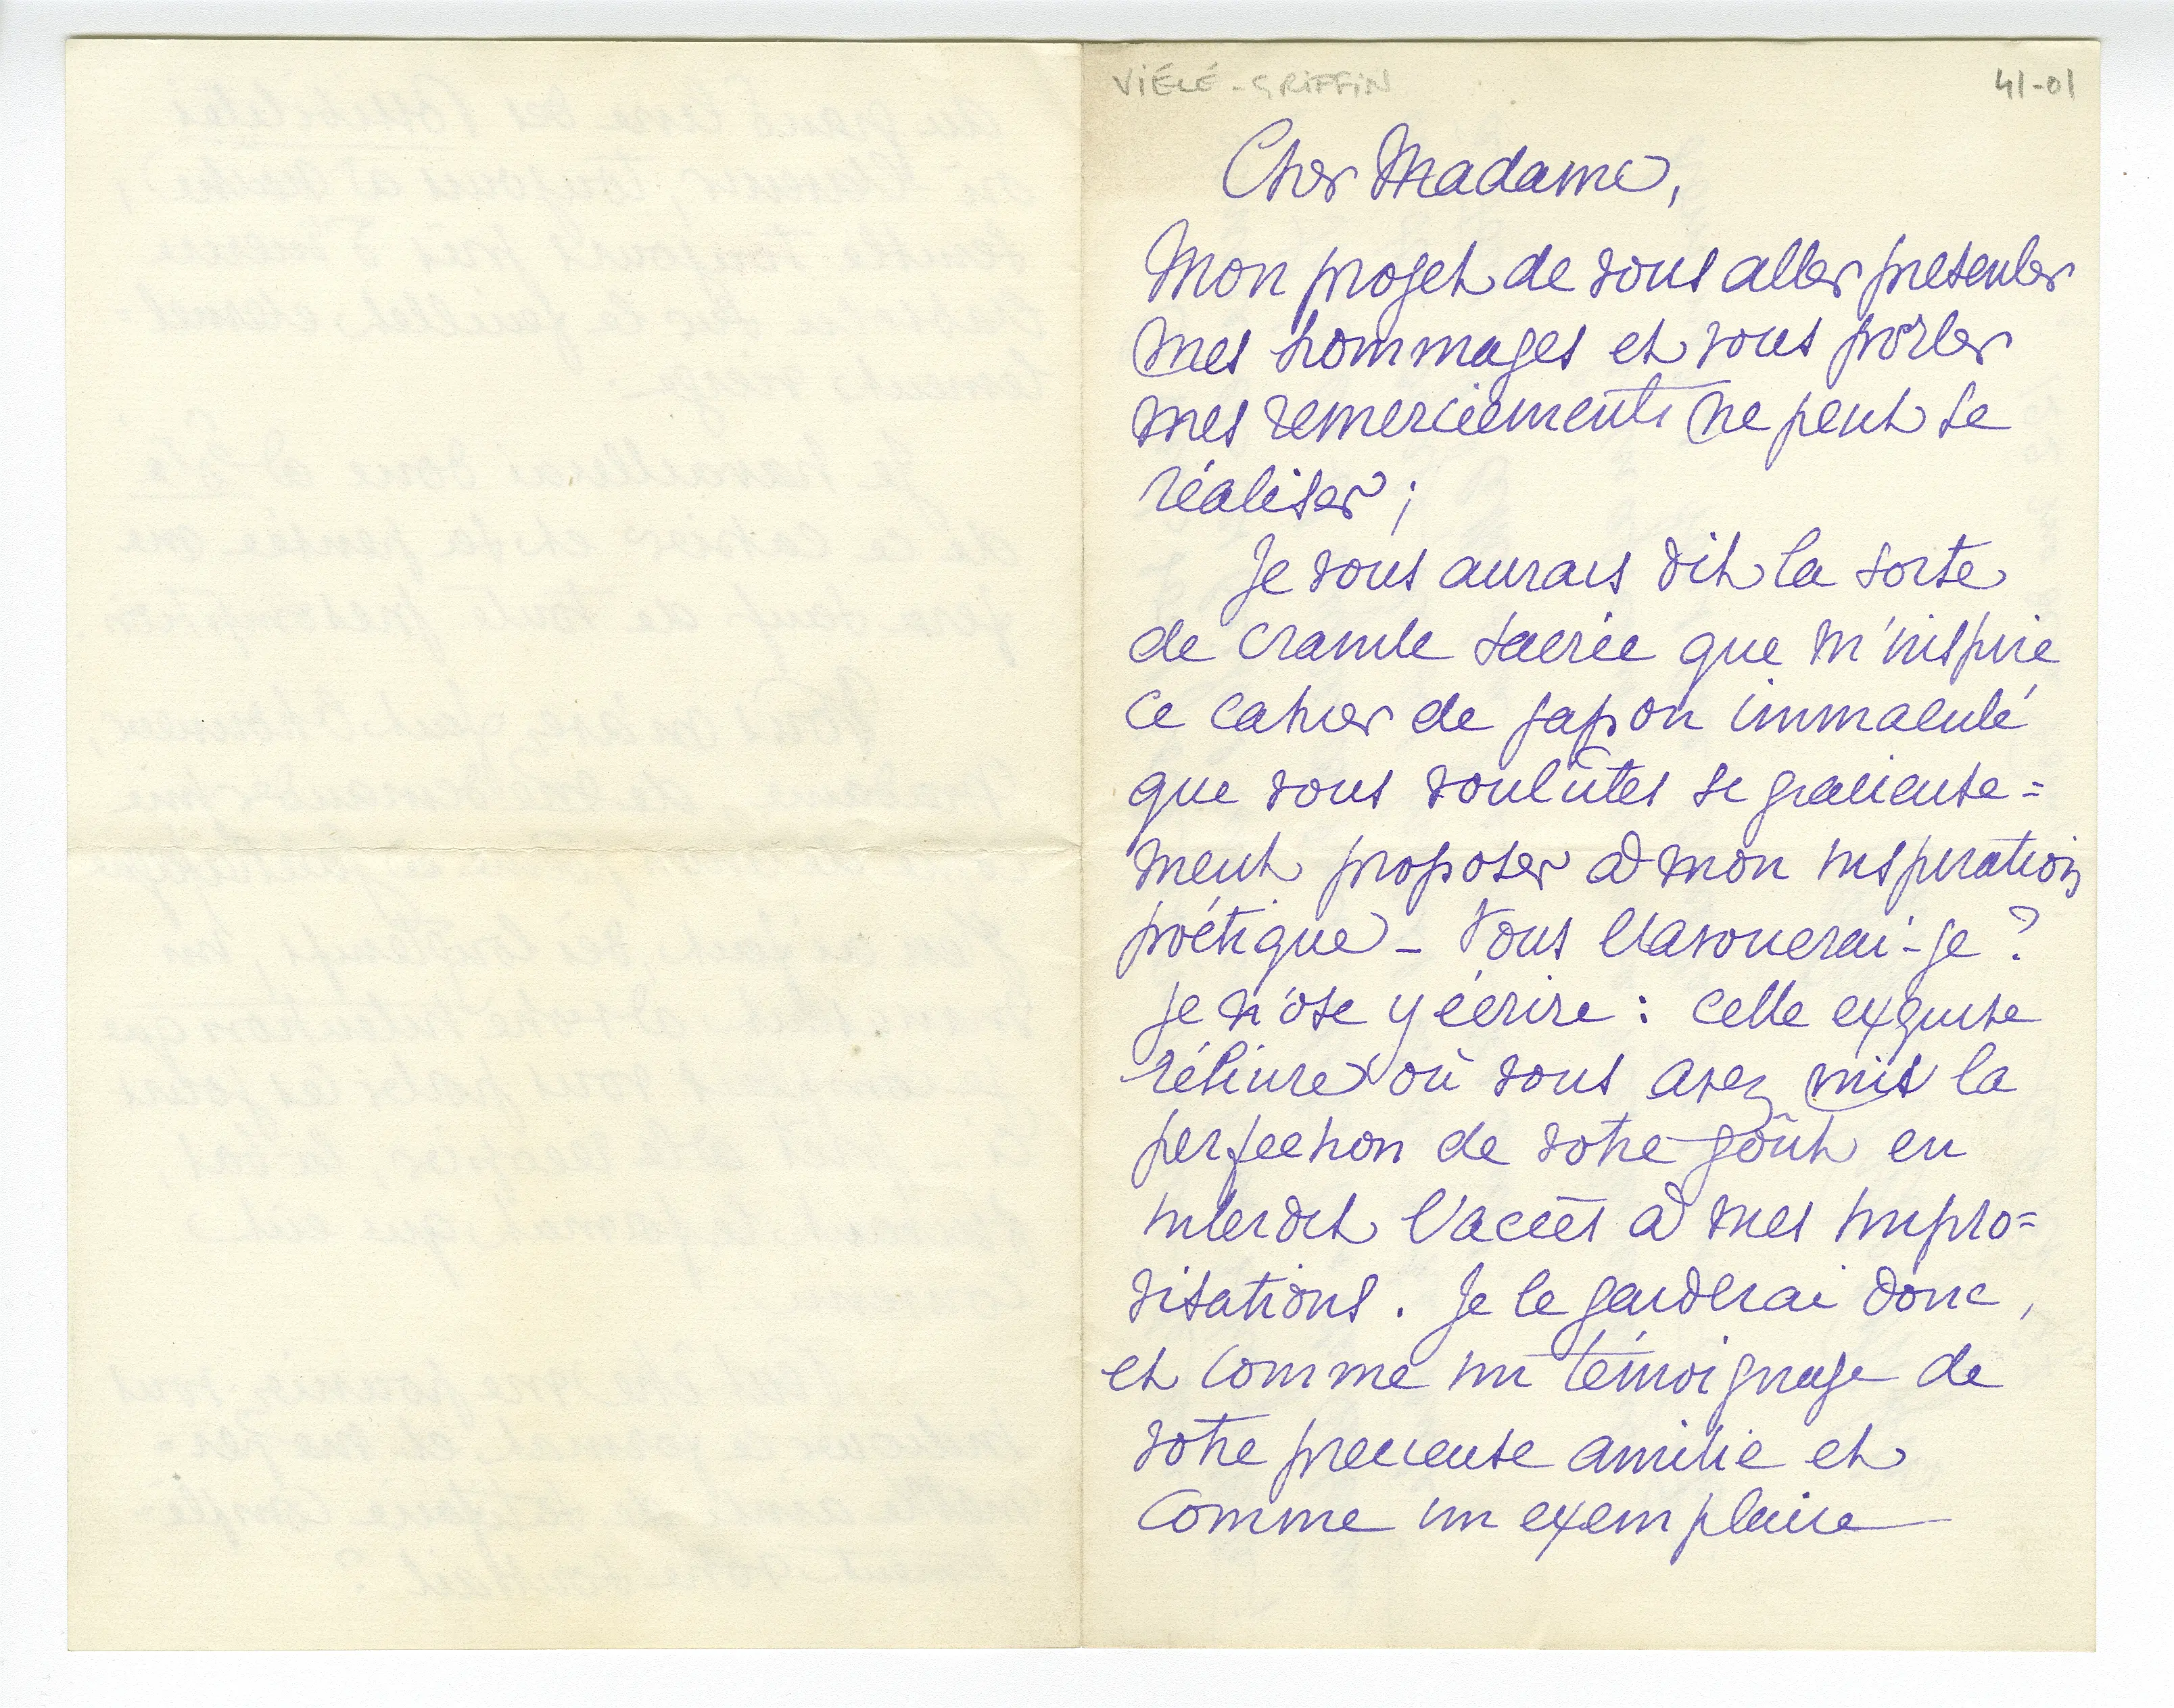 VIÉLÉ-GRIFFIN
41-01
Cher Madame,
Mon projet de vous aller présenter
mes hommages et vous porter
mes remerciements ne peut se
réaliser ;
Je vous aurais dit la sorte
de crainte sacrée que m'inspire
ce cahier de japon immaculé
que vous voulûtes si gracieuse=
ment proposer à mon inspiration
poétique – Vous l'avouerai-je ?
je n'ose y écrire : cette exquise
reliure où vous avez mis la
perfection de votre goût en
interdit l'accès à mes impro=
visations . Je le garderai donc,
et comme un témoignage de
votre precieuse amitié et
comme un exemplaire